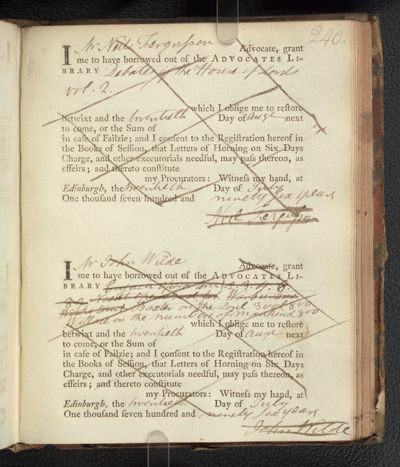 240.
I Mr Neil Fergusson Advocate, grant
me to have borrowed out of the ADVOCATES LI-
BRARY Debates of the House of Lords
vol. 2.
which I oblige me to reſtore
betwixt and the twentieth Day of augt next
to come, or the Sum of
in caſe of Failzie; and I conſent to the Regiſtration hereof in
the Books of Seſſion, that Letters of Horning on Six Days
Charge, and other executorials needful, may paſs thereon, as
effeirs; and thereto conſtitute
my Procurators: Witneſs my hand, at
Edinburgh, the twentieth Day of July
One thouſand ſeven hundred and ninety six years
Neil Ferguſson
I Mr John Wilde Advocate, grant
me to have borrowed out of the ADVOCATES LI-
BRARY
on the
on the numbers of mankind 8vo
which I oblige me to reſtore
betwixt and the twentieth Day of augt next
to come, or the Sum of
in caſe of Failzie; and I conſent to the Regiſtration hereof in
the Books of Seſſion, that Letters of Horning on Six Days
Charge, and other executorials needful, may paſs thereon, as
effeirs; and thereto conſtitute
my Procurators: Witneſs my hand, at
Edinburgh, the twentieth Day of July
One thouſand ſeven hundred and ninety six years
John Wilde